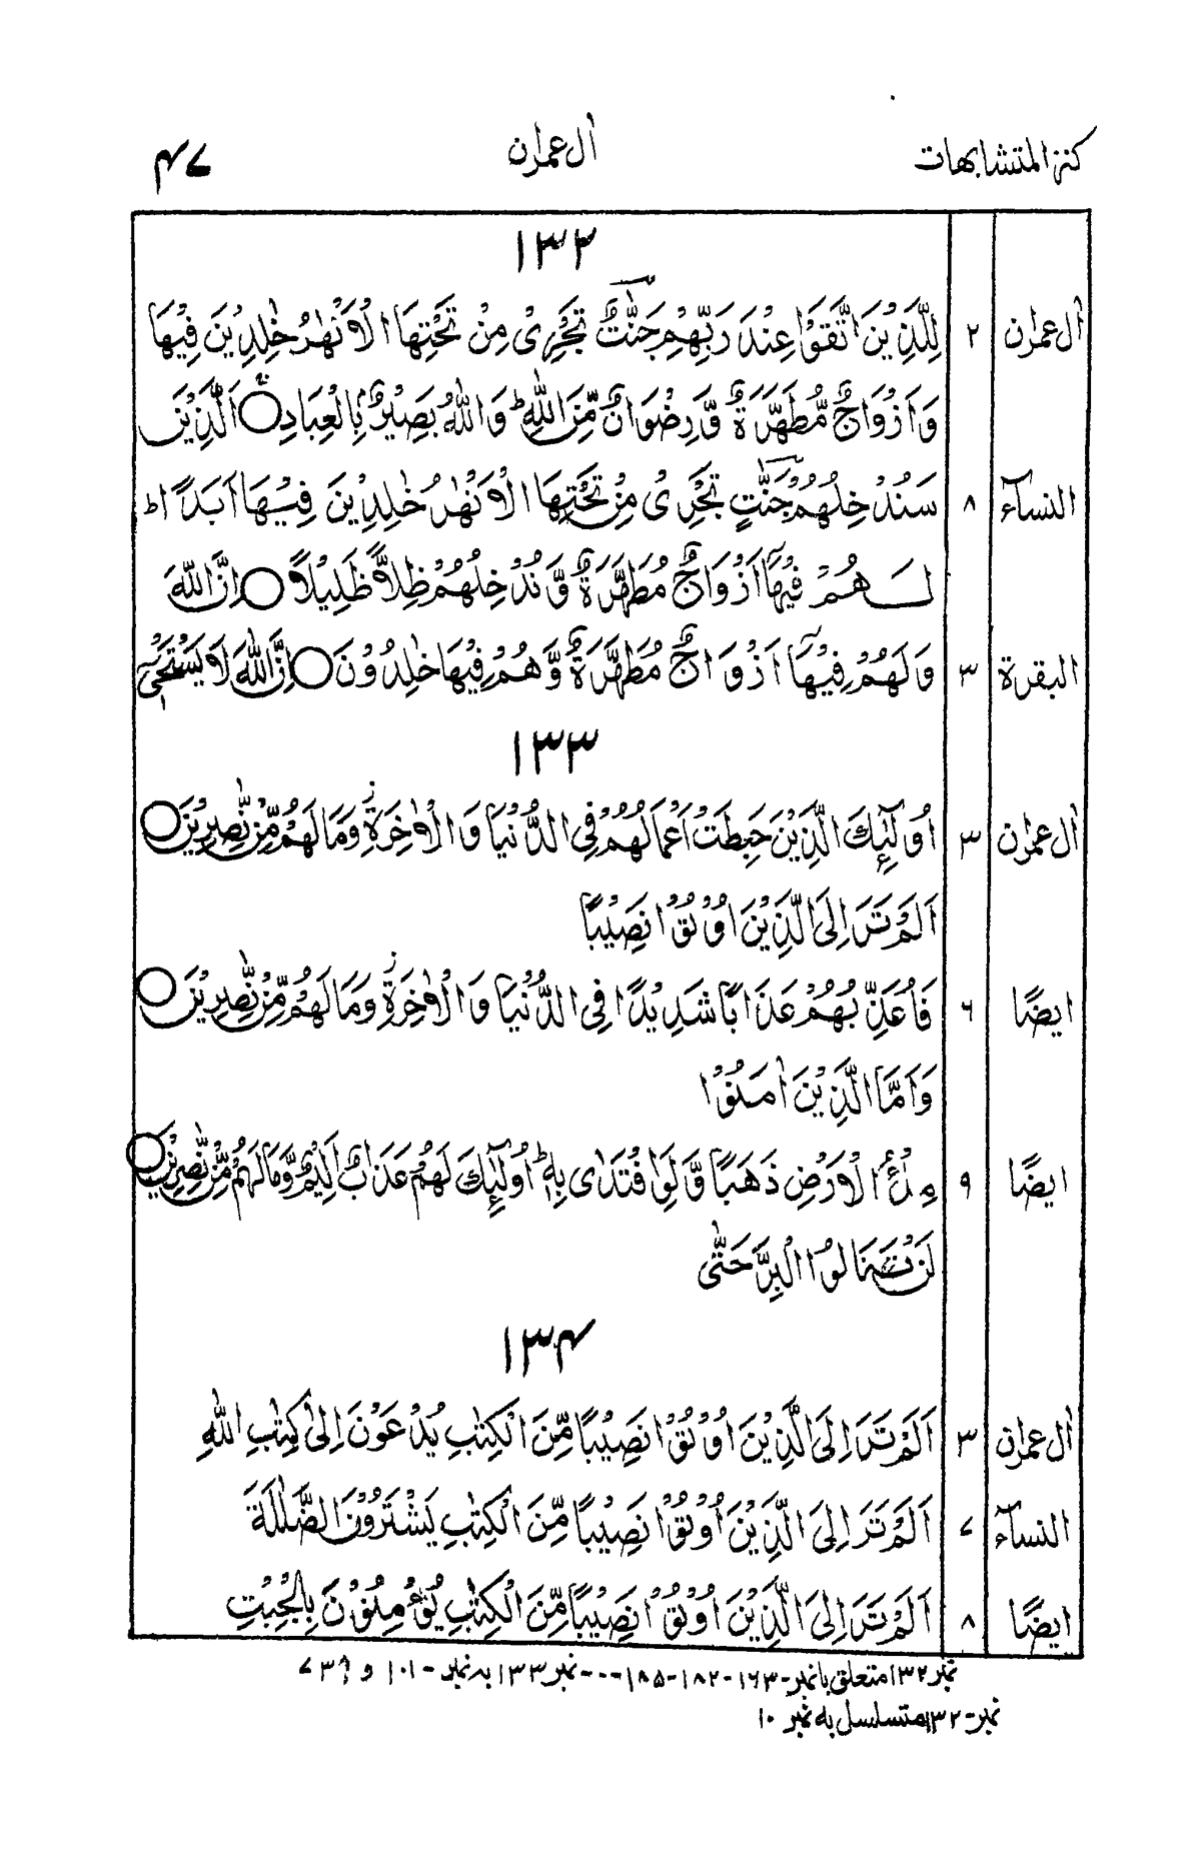 كنز المتشابهات
اٰل عمرٰن
۴۷
۱۳۲
اٰل عمرٰن ۲ لِلَّذِيْنَ اتَّقَوْا عِنْدَ رَبِّهِمْ جَنّٰتٌ تَجْرِيْ مِنْ تَحْتِهَا الْاَنْهٰرُ خٰلِدِيْنَ فِيْهَا
وَاَزْوَاجٌ مُّطَهَّرَةٌ وَّرِضْوَانٌ مِّنَ اللّٰهِ ؕ وَاللّٰهُ بَصِيْرٌۢ بِالْعِبَادِ ○ اَلَّذِيْنَ
النسآء ۸ سَنُدْخِلُهُمْ جَنّٰتٍ تَجْرِيْ مِنْ تَحْتِهَا الْاَنْهٰرُ خٰلِدِيْنَ فِيْهَا اَبَدًا ؕ
لَهُمْ فِيْهَآ اَزْوَاجٌ مُّطَهَّرَةٌ وَّنُدْخِلُهُمْ ظِلًّا ظَلِيْلًا ○ اِنَّ اللّٰهَ
البقرة ۳ وَلَهُمْ فِيْهَآ اَزْوَاجٌ مُّطَهَّرَةٌ وَّهُمْ فِيْهَا خٰلِدُوْنَ ○ اِنَّ اللّٰهَ لَا يَسْتَحْيٖۤ
۱۳۳
اٰل عمرٰن ۳ اُولٰٓئِكَ الَّذِيْنَ حَبِطَتْ اَعْمَالُهُمْ فِى الدُّنْيَا وَالْاٰخِرَةِ ۫ وَمَا لَهُمْ مِّنْ نّٰصِرِيْنَ ○
اَلَمْ تَرَ اِلَى الَّذِيْنَ اُوْتُوْا نَصِيْبًا
ايضًا ۶ فَاُعَذِّبُهُمْ عَذَابًا شَدِيْدًا فِى الدُّنْيَا وَالْاٰخِرَةِ ۫ وَمَا لَهُمْ مِّنْ نّٰصِرِيْنَ ○
وَاَمَّا الَّذِيْنَ اٰمَنُوْا
ايضًا ۹ مِلْءُ الْاَرْضِ ذَهَبًا وَّلَوِ افْتَدٰى بِهٖ ؕ اُولٰٓئِكَ لَهُمْ عَذَابٌ اَلِيْمٌ وَّمَا لَهُمْ مِّنْ نّٰصِرِيْنَ ○
لَنْ تَنَالُوا الْبِرَّ حَتّٰى
۱۳۴
اٰل عمرٰن ۳ اَلَمْ تَرَ اِلَى الَّذِيْنَ اُوْتُوْا نَصِيْبًا مِّنَ الْكِتٰبِ يُدْعَوْنَ اِلٰى كِتٰبِ اللّٰهِ
النسآء ۷ اَلَمْ تَرَ اِلَى الَّذِيْنَ اُوْتُوْا نَصِيْبًا مِّنَ الْكِتٰبِ يَشْتَرُوْنَ الضَّلٰلَةَ
ايضًا ۸ اَلَمْ تَرَ اِلَى الَّذِيْنَ اُوْتُوْا نَصِيْبًا مِّنَ الْكِتٰبِ يُؤْمِنُوْنَ بِالْجِبْتِ
نمبر ۱۳۲ متعلق با نمبر - ۱۶۳ - ۱۸۲ - ۱۸۵ --- نمبر ۱۳۳ به نمبر - ۱۰۱ و
نمبر - ۱۳۲ متسلسل به نمبر ۱۰